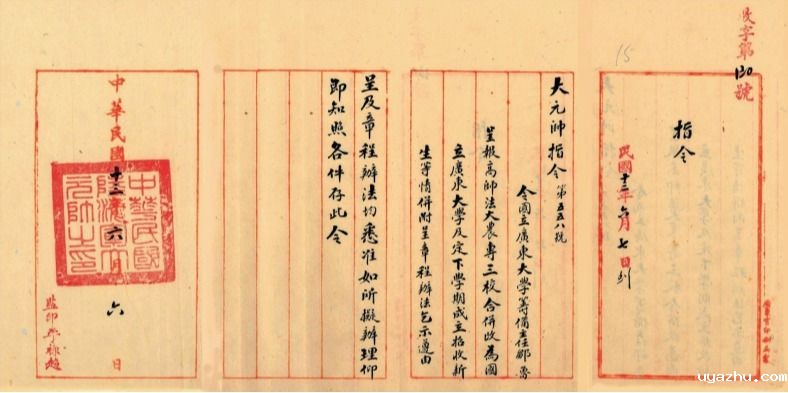 收字第130號
15
指令
民國十三年六月七日到
大元帥指令 第五五八號
令國立廣東大學籌備主任鄒魯
呈報高師法大農專三校合併改為國
立廣東大學及定下學期成立招收新
生等情併附呈章程辦法乞示遵由
呈及章程辦法均悉准如所擬辦理仰
即知照各件存此令
中華民國十三年六月六日
中華民國陸海軍大元帥之印
監印
uyazhu.com